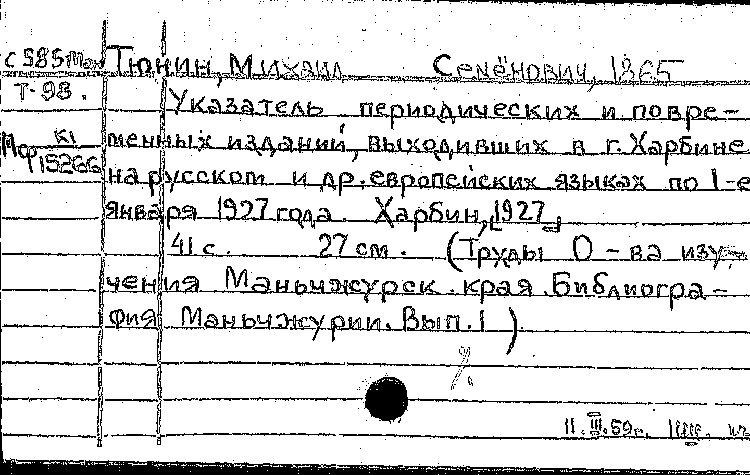 С 585 Тюнин, Михаил Семёнович, 1865
Т-98. Указатель периодических и повре-
К1
Мф 15266 менных изданий, выходивших в г. Харбине
на русском и др. европейских языках по 1-е
января 1927 года. Харбин, [1927]
41 с. 27 см. (Труды О-ва изу-
чения Маньчжурск. края. Библиогра-
фия Маньчжурии. Вып. 1)
11.III.59г.